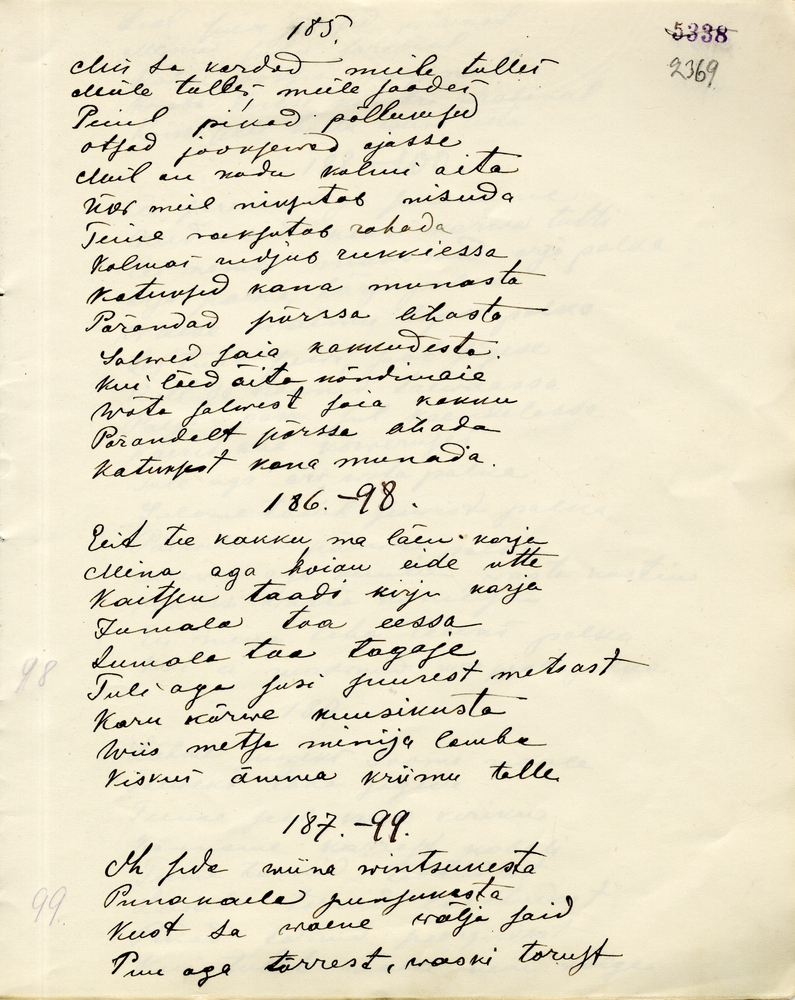 185.
5338
2369
Mis sa kardad meile tulles
Meile tulles, meile joodes
Peiul pikad põlluwsed
otsad jooksewad ojasse
Meil on kodu kolmi aita
Üks meil nikutab nisuda
Teine raksutab rahada
Kolmas redjub rukkiessa
Katuksed kana munasta
Pärandad pörssa lihasta
Salwed saia kakkudesta.
Kui läed äita kõndimaie
Wõta salwest saia kakku
Pärandalt pörssa lihada
Katuksest kana munada.
186.-98.
Eit tee kakku ma läen karja
Mina aga hoian eide utte
Kaitsen taadi kirju karja
Jumala toa eessa
Jumala toa tagaje
98
Tuli aga susi suurest metsast
Karu kõrwe kuusikusta
Wiis metsa minija lamba
Kiskus ämma kriimu talle.
187.-99.
Oh seda wiina wintsukesta
Punakaela punsukesta
99.
Kust sa waene wälja said
Puu aga törrest, waski torust